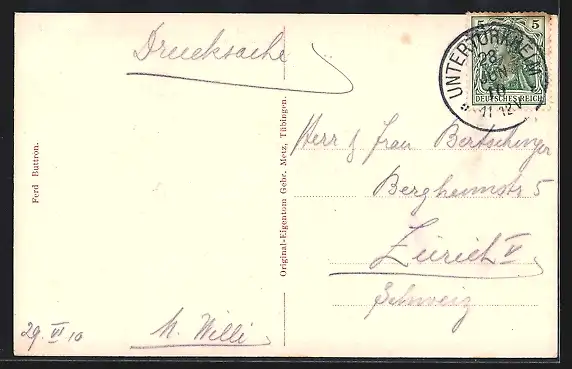 Drucksache
5 5
UNTERTÜRKHEIM
28
JUN
10
11-12V
DEUTSCHES REICH
Ferd Buttron.
Original-Eigentum Gebr. Metz, Tübingen.
Herr & Frau Bertschinger
Bergheimstr 5
Zürich V
Schweiz
29. VI 10
M. Willi